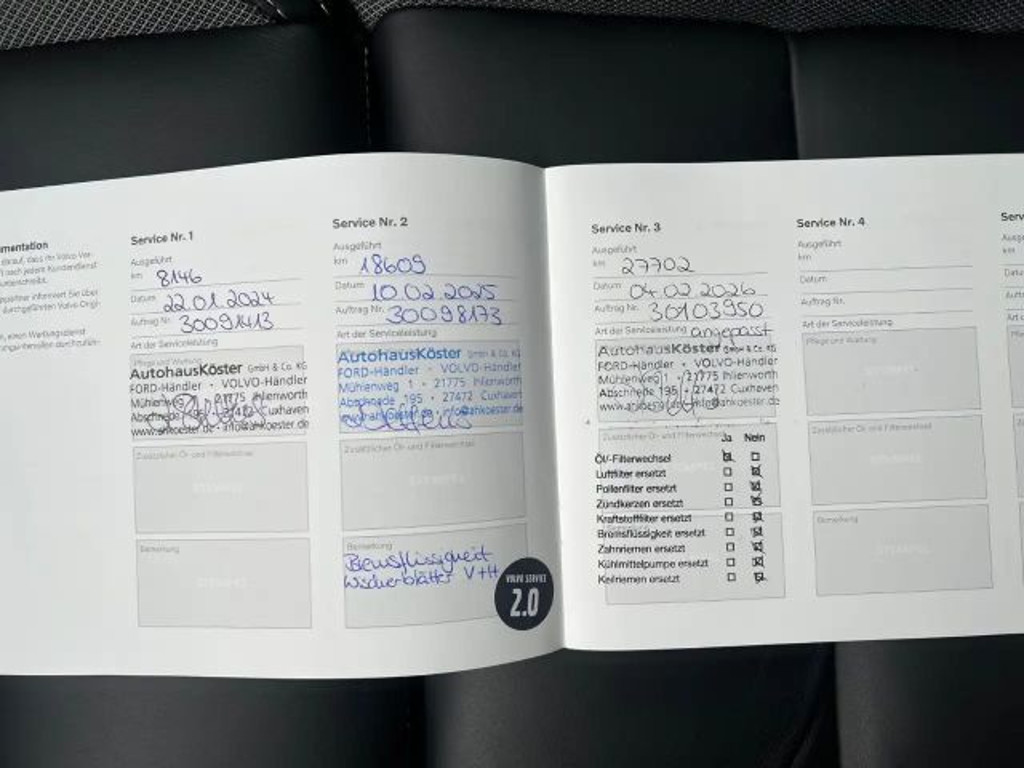 mentation
Service Nr. 1
Ausgeführt
km 8146
Datum 22.01.2024
Auftrag Nr. 30091413
Art der Serviceleistung
Pflege und Wartung
AutohausKöster GmbH & Co. KG
FORD-Händler • VOLVO-Händler
Mühlenweg 1 • 21775 Ihlienworth
Abschnede 195 • 27472 Cuxhaven
www.ahkoester.de • info@ahkoester.de
Zusätzlicher Öl- und Filterwechsel
STEMPEL
Bemerkung
STEMPEL
Service Nr. 2
Ausgeführt
km 18609
Datum 10.02.2025
Auftrag Nr. 30098173
Art der Serviceleistung
AutohausKöster GmbH & Co. KG
FORD-Händler • VOLVO-Händler
Mühlenweg 1 • 21775 Ihlienworth
Abschnede 195 • 27472 Cuxhaven
www.ahkoester.de • info@ahkoester.de
Zusätzlicher Öl- und Filterwechsel
STEMPEL
Bemerkung
Bremsflüssigkeit
Wischerblätter V+H
VOLVO SERVICE
2.0
Service Nr. 3
Ausgeführt
km 27702
Datum 04.02.2026
Auftrag Nr. 30103950
Art der Serviceleistung angepasst
AutohausKöster GmbH & Co. KG
FORD-Händler • VOLVO-Händler
Mühlenweg 1 • 21775 Ihlienworth
Abschnede 195 • 27472 Cuxhaven
www.ahkoester.de • info@ahkoester.de
Zusätzlicher Öl- und Filterwechsel
Ja Nein
Öl-/-Filterwechsel
Luftfilter ersetzt
Pollenfilter ersetzt
Zündkerzen ersetzt
Kraftstofffilter ersetzt
Bremsflüssigkeit ersetzt
Zahnriemen ersetzt
Kühlmittelpumpe ersetzt
Keilriemen ersetzt
Service Nr. 4
Ausgeführt
km
Datum
Auftrag Nr.
Art der Serviceleistung
Pflege und Wartung
STEMPEL
Zusätzlicher Öl- und Filterwechsel
STEMPEL
Bemerkung
STEMPEL
Serv
Ausge
km
Datum
Auftr
Art d